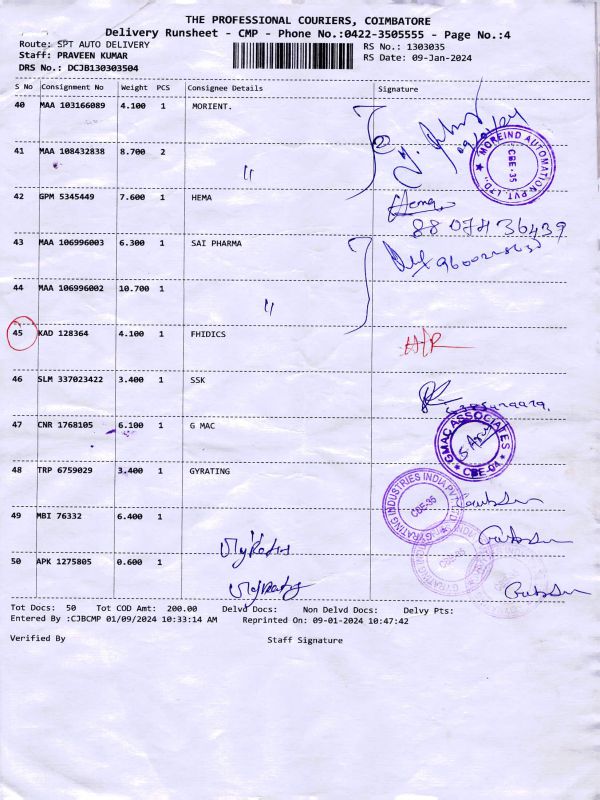 THE PROFESSIONAL COURIERS, COIMBATORE
Delivery Runsheet - CMP - Phone No.:0422-3505555 - Page No.:4
Route: SPT AUTO DELIVERY
RS No.: 1303035
Staff: PRAVEEN KUMAR
RS Date: 09-Jan-2024
DRS No.: DCJB130303504
S No Consignment No Weight PCS Consignee Details Signature
40 MAA 103166089 4.100 1 MORIENT.
09/01/24
MOREIND AUTOMATION PVT. LTD., ★ CBE-35
41 MAA 108432838 8.700 2 "
42 GPM 5345449 7.600 1 HEMA Hema
8807436439
43 MAA 106996003 6.300 1 SAI PHARMA
44 MAA 106996002 10.700 1 "
45 KAD 128364 4.100 1 FHIDICS
46 SLM 337023422 3.400 1 SSK
47 CNR 1768105 6.100 1 G MAC
GMAC ASSOCIATES ★ CBE-04 ★
48 TRP 6759029 3.400 1 GYRATING
GYRATING INDUSTRIES INDIA PVT LTD CBE-35
49 MBI 76332 6.400 1
50 APK 1275805 0.600 1
Tot Docs: 50 Tot COD Amt: 200.00 Delvd Docs: Non Delvd Docs: Delvy Pts:
Entered By :CJBCMP 01/09/2024 10:33:14 AM Reprinted On: 09-01-2024 10:47:42
Verified By Staff Signature